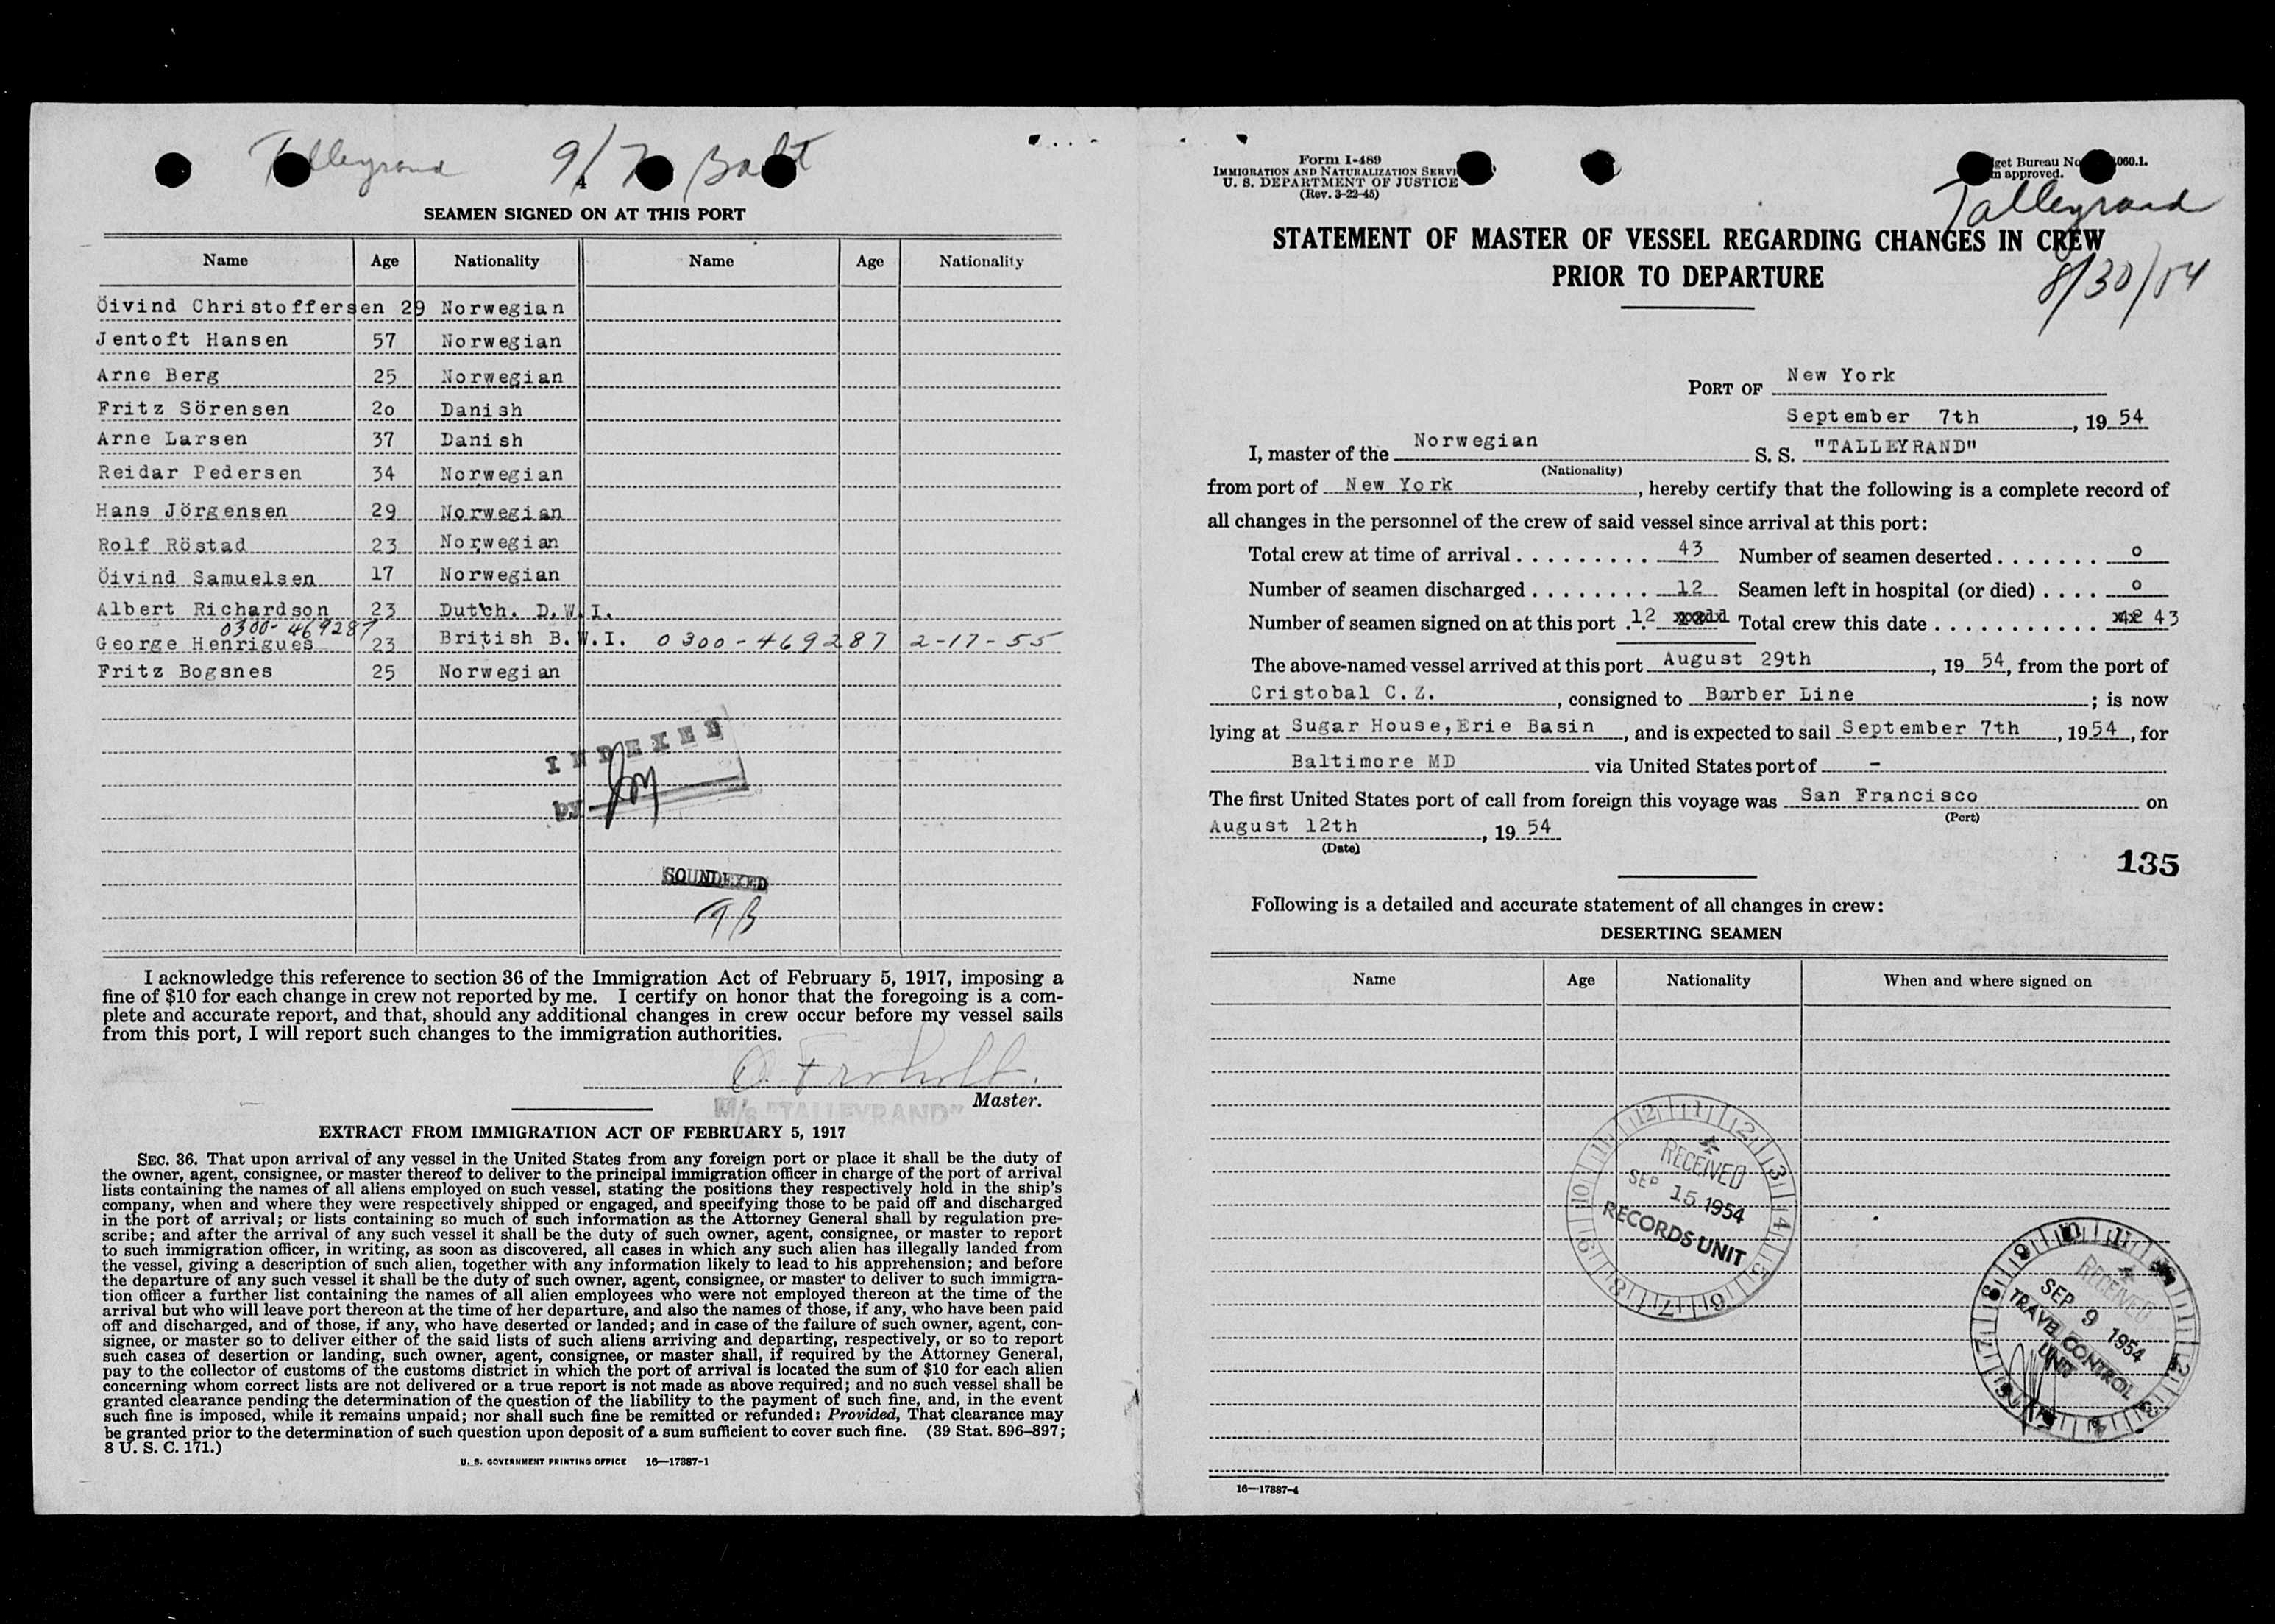 Talleyrand 9/7 Balt
4
SEAMEN SIGNED ON AT THIS PORT
Name Age Nationality Name Age Nationality
Öivind Christoffersen 29 Norwegian
Jentoft Hansen 57 Norwegian
Arne Berg 25 Norwegian
Fritz Sörensen 2o Danish
Arne Larsen 37 Danish
Reidar Pedersen 34 Norwegian
Hans Jörgensen 29 Norwegian
Rolf Röstad 23 Norwegian
Öivind Samuelsen 17 Norwegian
Albert Richardson 23 Dutch. D.W.I.
0300-469287
George Henrigues 23 British B.W.I. 0300-469287 2-17-55
Fritz Bogsnes 25 Norwegian
INDEXED
by
SOUNDEXED
I acknowledge this reference to section 36 of the Immigration Act of February 5, 1917, imposing a
fine of $10 for each change in crew not reported by me. I certify on honor that the foregoing is a com-
plete and accurate report, and that, should any additional changes in crew occur before my vessel sails
from this port, I will report such changes to the immigration authorities.
O. Froholt.
Master.
M/s "TALLEYRAND"
EXTRACT FROM IMMIGRATION ACT OF FEBRUARY 5, 1917
SEC. 36. That upon arrival of any vessel in the United States from any foreign port or place it shall be the duty of
the owner, agent, consignee, or master thereof to deliver to the principal immigration officer in charge of the port of arrival
lists containing the names of all aliens employed on such vessel, stating the positions they respectively hold in the ship's
company, when and where they were respectively shipped or engaged, and specifying those to be paid off and discharged
in the port of arrival; or lists containing so much of such information as the Attorney General shall by regulation pre-
scribe; and after the arrival of any such vessel it shall be the duty of such owner, agent, consignee, or master to report
to such immigration officer, in writing, as soon as discovered, all cases in which any such alien has illegally landed from
the vessel, giving a description of such alien, together with any information likely to lead to his apprehension; and before
the departure of any such vessel it shall be the duty of such owner, agent, consignee, or master to deliver to such immigra-
tion officer a further list containing the names of all alien employees who were not employed thereon at the time of the
arrival but who will leave port thereon at the time of her departure, and also the names of those, if any, who have been paid
off and discharged, and of those, if any, who have deserted or landed; and in case of the failure of such owner, agent, con-
signee, or master so to deliver either of the said lists of such aliens arriving and departing, respectively, or so to report
such cases of desertion or landing, such owner, agent, consignee, or master shall, if required by the Attorney General,
pay to the collector of customs of the customs district in which the port of arrival is located the sum of $10 for each alien
concerning whom correct lists are not delivered or a true report is not made as above required; and no such vessel shall be
granted clearance pending the determination of the question of the liability to the payment of such fine, and, in the event
such fine is imposed, while it remains unpaid; nor shall such fine be remitted or refunded: Provided, That clearance may
be granted prior to the determination of such question upon deposit of a sum sufficient to cover such fine. (39 Stat. 896-897;
8 U. S. C. 171.)
U. S. GOVERNMENT PRINTING OFFICE 16—17387-1
Form I-489
IMMIGRATION AND NATURALIZATION SERVI
U. S. DEPARTMENT OF JUSTICE
(Rev. 3-22-45)
get Bureau No 060.1.
m approved.
Talleyrand
8/30/54
STATEMENT OF MASTER OF VESSEL REGARDING CHANGES IN CREW
PRIOR TO DEPARTURE
PORT OF New York
September 7th, 1954
I, master of the Norwegian S. S. "TALLEYRAND"
(Nationality)
from port of New York, hereby certify that the following is a complete record of
all changes in the personnel of the crew of said vessel since arrival at this port:
Total crew at time of arrival . . . . . . . . . 43 Number of seamen deserted . . . . . . . o
Number of seamen discharged . . . . . . . . 12 Seamen left in hospital (or died) . . . . o
Number of seamen signed on at this port . 12 Total crew this date . . . . . . . . . . . 43
The above-named vessel arrived at this port August 29th, 1954, from the port of
Cristobal C.Z., consigned to Barber Line; is now
lying at Sugar House, Erie Basin, and is expected to sail September 7th, 1954, for
Baltimore MD via United States port of -
The first United States port of call from foreign this voyage was San Francisco on
(Port)
August 12th, 1954
(Date)
135
Following is a detailed and accurate statement of all changes in crew:
DESERTING SEAMEN
Name Age Nationality When and where signed on
RECEIVED
SEP 15 1954
RECORDS UNIT
RECEIVED
SEP 9 1954
TRAVEL CONTROL
UNIT
16—17387-4